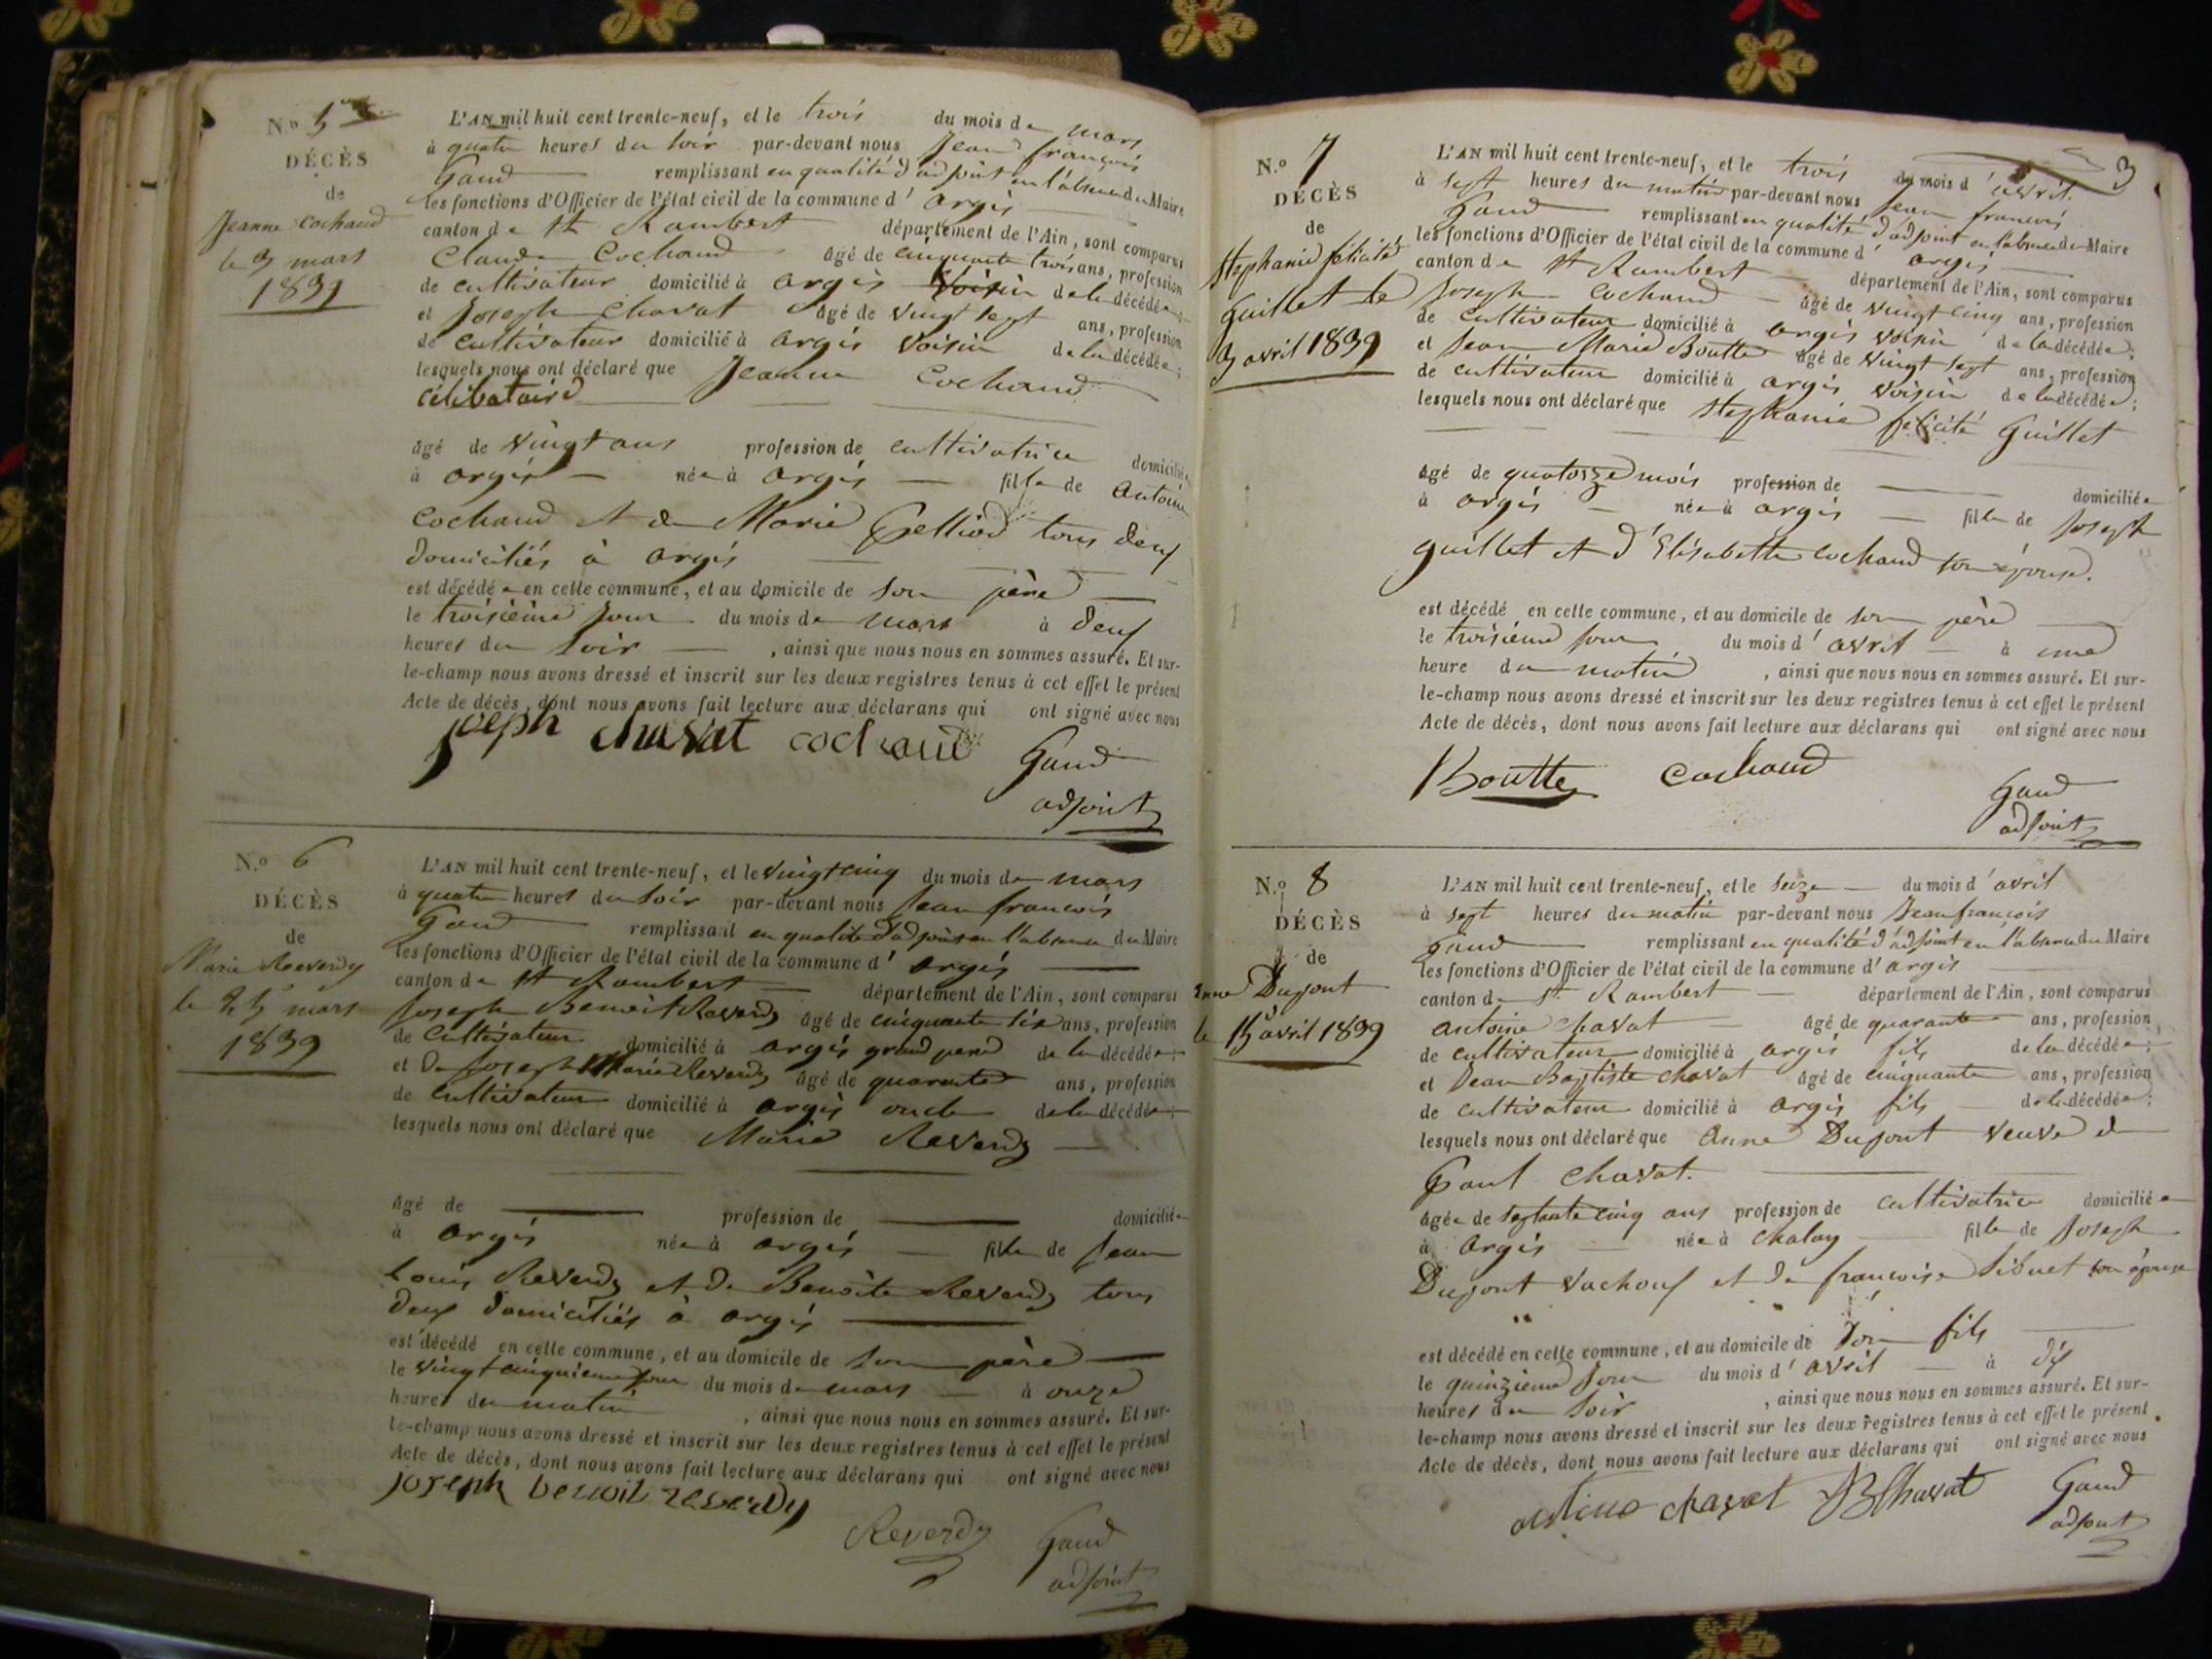 N.o 5
DÉCÈS
de
Jeanne Cochaud
le 3 mars
1839
L'AN mil huit cent trente-neuf, et le trois du mois de mars
à quatre heures du soir par-devant nous Jean françois
Gaud remplissant en qualité d'adjoint en l'absence du Maire
les fonctions d'Officier de l'état civil de la commune d' argis
canton de St Rambert département de l'Ain, sont comparus
Claude Cochaud âgé de cinquante trois ans, profession
de cultivateur domicilié à argis voisin de la décédée;
et Joseph Chavat âgé de vingt sept ans, profession
de cultivateur domicilié à argis voisin de la décédée;
lesquels nous ont déclaré que Jeanne Cochaud
célibataire
âgé de vingt ans profession de cultivatrice domiciliée
à argis née à argis fille de antoine
Cochaud et de Marie Pelliod tous deux
domiciliés à argis
est décédée en cette commune, et au domicile de son père
le troisième jour du mois de mars à deux
heures du soir, ainsi que nous nous en sommes assuré. Et sur-
le-champ nous avons dressé et inscrit sur les deux registres tenus à cet effet le présent
Acte de décès, dont nous avons fait lecture aux déclarans qui ont signé avec nous
joseph chavat cochaud Gaud
adjoint
N.o 6
DÉCÈS
de
Marie Reverdy
le 25 mars
1839
L'AN mil huit cent trente-neuf, et le vingt cinq du mois de mars
à quatre heures du soir par-devant nous Jean françois
Gaud remplissant en qualité d'adjoint en l'absence du Maire
les fonctions d'Officier de l'état civil de la commune d' argis
canton de St Rambert département de l'Ain, sont comparus
Joseph Benoit Reverdy âgé de cinquante six ans, profession
de Cultivateur domicilié à argis grand père de la décédée;
et de Joseph Marie Reverdy âgé de quarante ans, profession
de Cultivateur domicilié à argis oncle de la décédée;
lesquels nous ont déclaré que Marie Reverdy
âgé de profession de domiciliée
à argis née à argis fille de Jean
Louis Reverdy et de Benoite Reverdy tous
deux domiciliés à argis
est décédé en cette commune, et au domicile de son père
le vingt cinquième jour du mois de mars à onze
heures du matin, ainsi que nous nous en sommes assuré. Et sur-
le-champ nous avons dressé et inscrit sur les deux registres tenus à cet effet le présent
Acte de décès, dont nous avons fait lecture aux déclarans qui ont signé avec nous
joseph benoit reverdy
Reverdy Gaud
adjoint
3
N.o 7
DÉCÈS
de
Stephanie félicité
Guillet le
3 avril 1839
L'AN mil huit cent trente-neuf, et le trois du mois d'avril
à sept heures du matin par-devant nous Jean francois
Gaud remplissant en qualité d'adjoint en l'absence du Maire
les fonctions d'Officier de l'état civil de la commune d' argis
canton de St Rambert département de l'Ain, sont comparus
Joseph Cochaud âgé de vingt cinq ans, profession
de cultivateur domicilié à argis voisin de la décédée;
et Jean Marie Boutte âgé de vingt sept ans, profession
de cultivateur domicilié à argis voisin de la décédée;
lesquels nous ont déclaré que Stephanie félicité Guillet
âgé de quatorze mois profession de domiciliée
à argis née à argis fille de Joseph
guillet et d'Elisabette cochaud son épouse.
est décédé en cette commune, et au domicile de son père
le troisième jour du mois d' avril à une
heure du matin, ainsi que nous nous en sommes assuré. Et sur-
le-champ nous avons dressé et inscrit sur les deux registres tenus à cet effet le présent
Acte de décès, dont nous avons fait lecture aux déclarans qui ont signé avec nous
Boutte Cochaud Gaud
adjoint
N.o 8
DÉCÈS
de
anne Dupont
le 15 avril 1839
L'AN mil huit cent trente-neuf, et le seize du mois d' avril
à sept heures du matin par-devant nous Jean francois
Gaud remplissant en qualité d'adjoint en l'absence du Maire
les fonctions d'Officier de l'état civil de la commune d' argis
canton de St Rambert département de l'Ain, sont comparus
antoine chavat âgé de quarante ans, profession
de cultivateur domicilié à argis fils de la décédée;
et Jean Baptiste chavat âgé de cinquante ans, profession
de cultivateur domicilié à argis fils de la décédée;
lesquels nous ont déclaré que anne Dupont veuve de
Paul chavat.
âgée de septante cinq ans profession de cultivatrice domiciliée
à argis née à chaley fille de Joseph
Dupont vachoux et de francoise son épouse
est décédé en cette commune, et au domicile de son fils
le quinzième jour du mois d' avril à dix
heures du soir, ainsi que nous nous en sommes assuré. Et sur-
le-champ nous avons dressé et inscrit sur les deux registres tenus à cet effet le présent
Acte de décès, dont nous avons fait lecture aux déclarans qui ont signé avec nous
chavat JB Chavat Gaud
adjoint